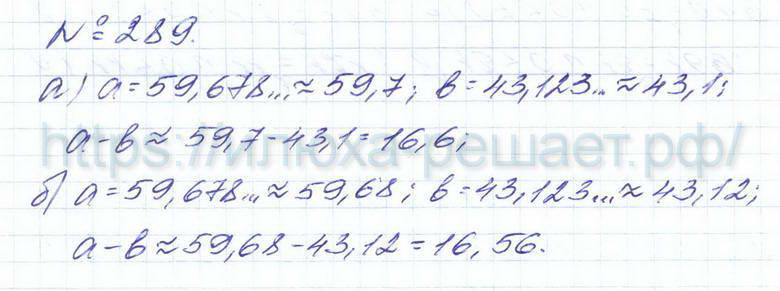 № 289.
а) a = 59,678... ≈ 59,7; в = 43,123... ≈ 43,1;
a - в ≈ 59,7 - 43,1 = 16,6;
https://илюха-решает.рф/
б) a = 59,678... ≈ 59,68; в = 43,123... ≈ 43,12;
a - в ≈ 59,68 - 43,12 = 16,56.